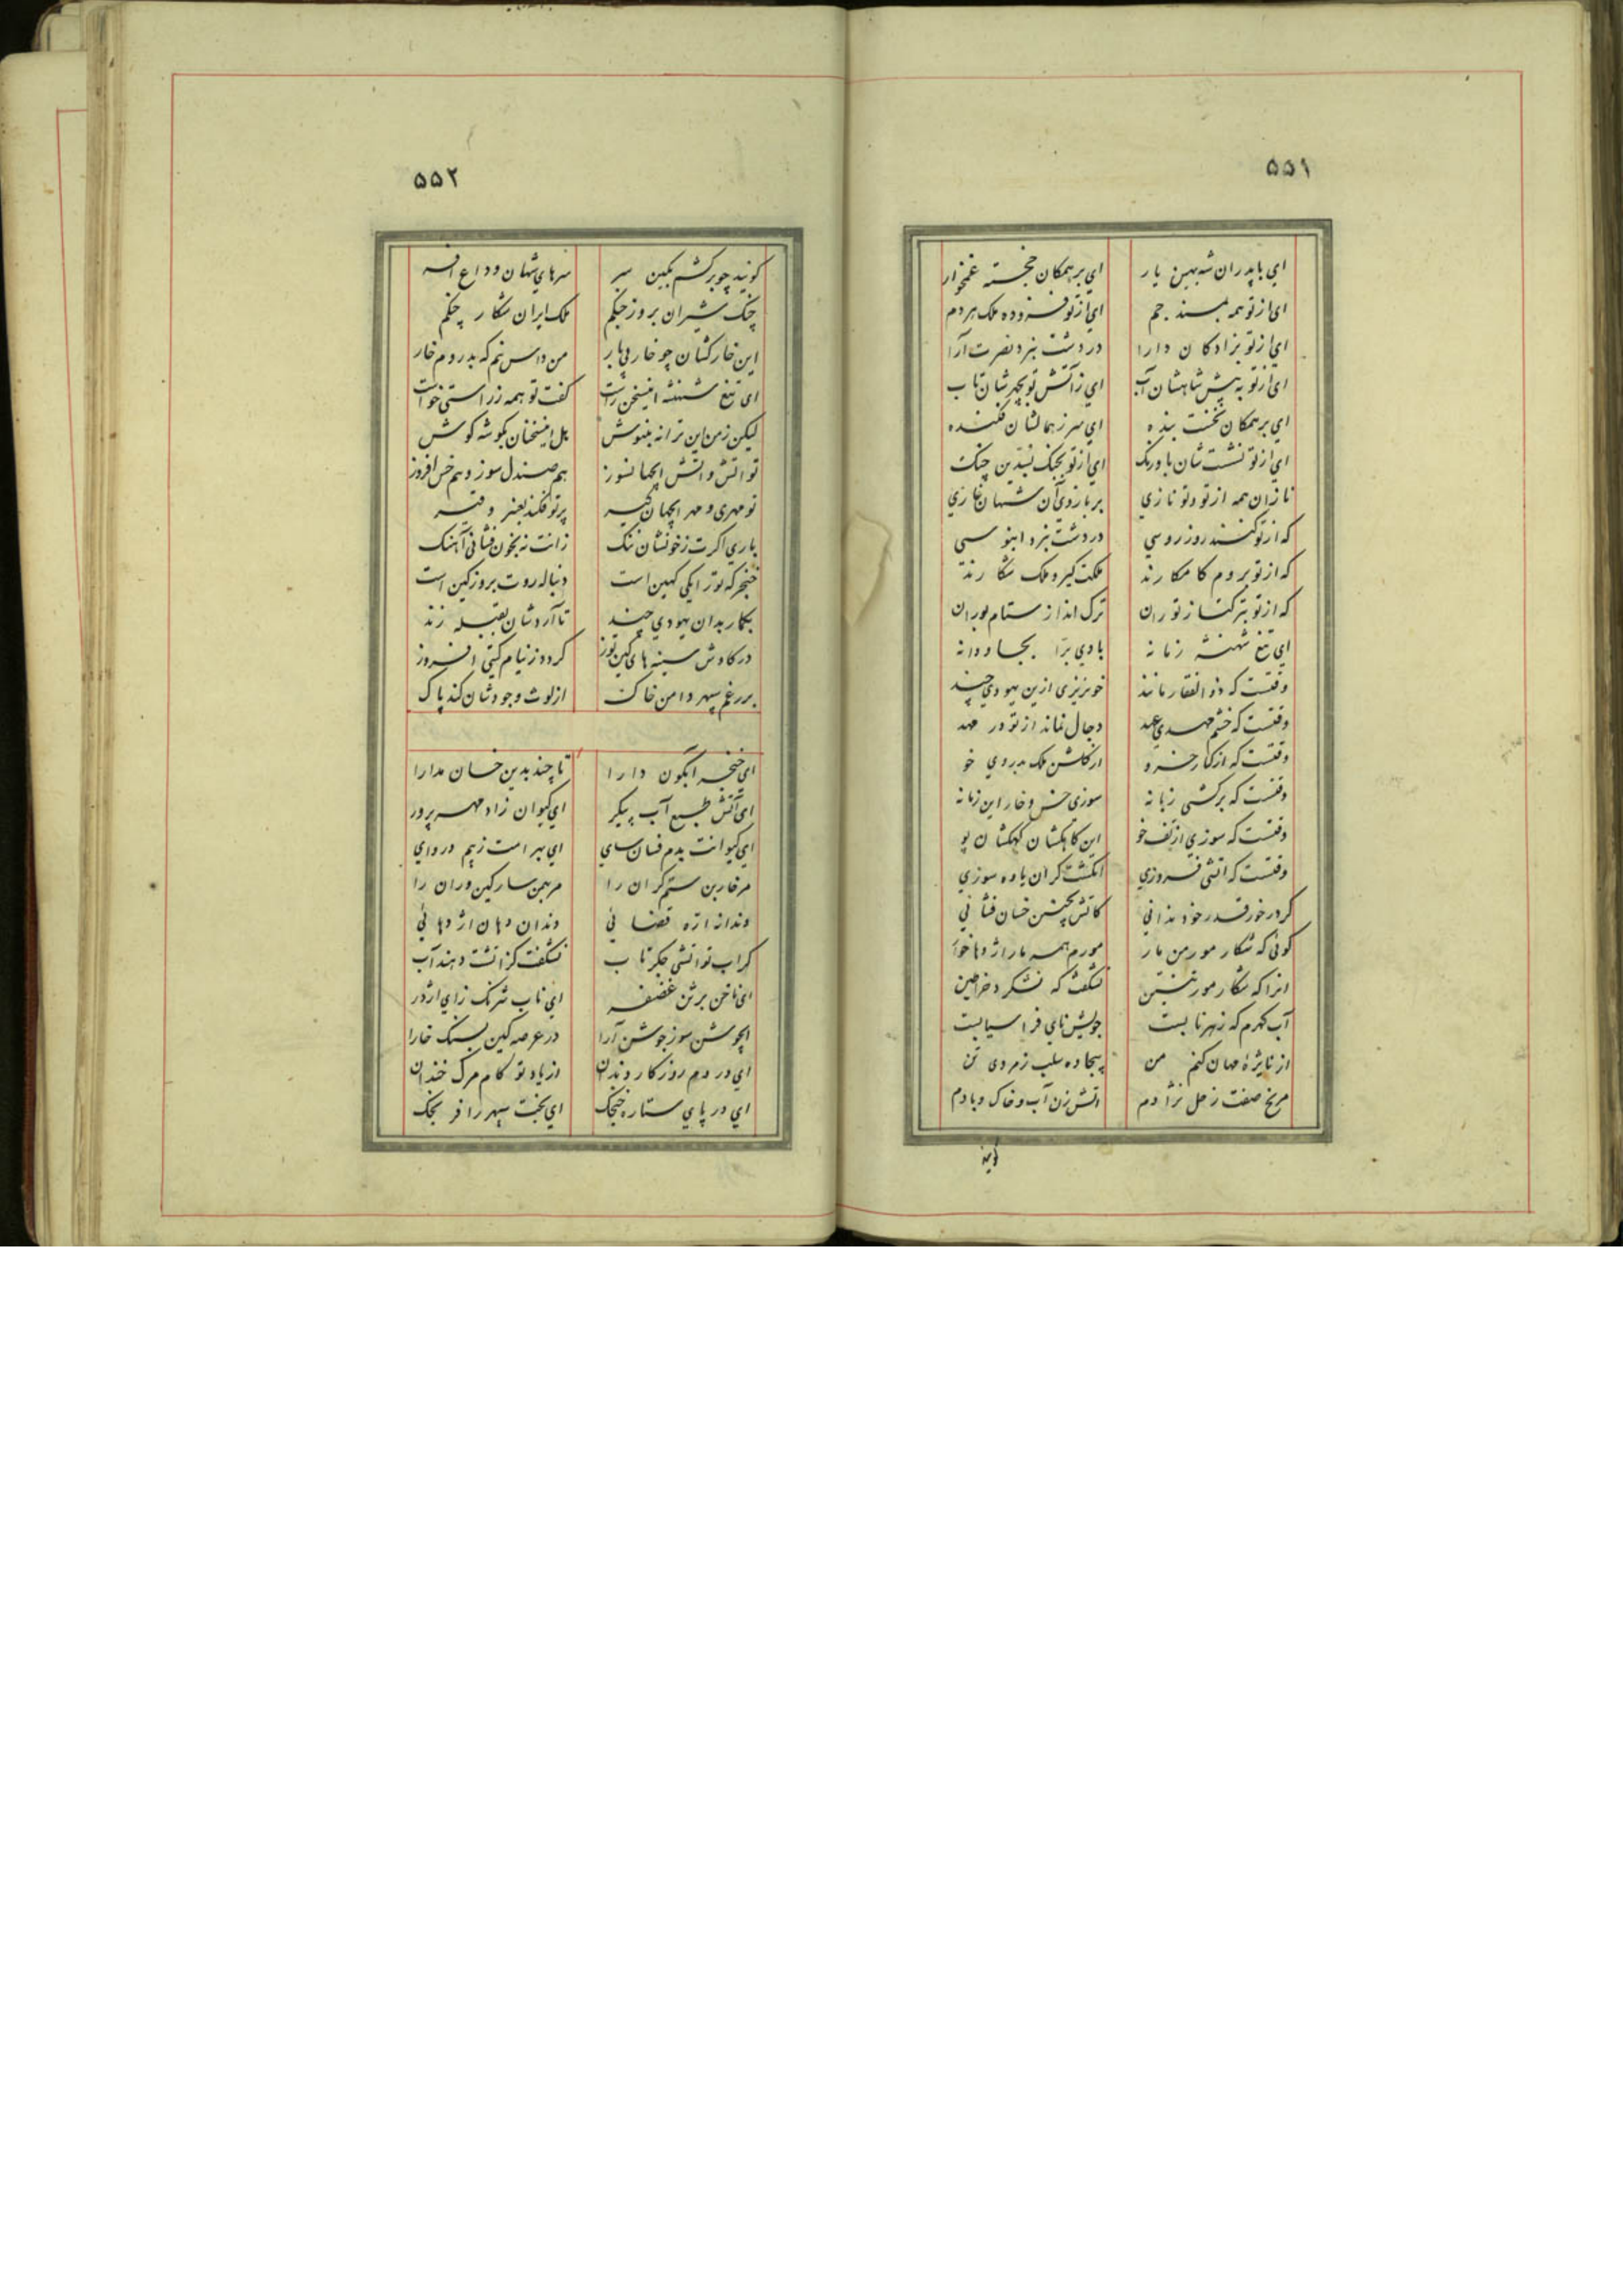 ۵۵۱
ای باپدران شه بهین یار ای بر همکان خجسته غمخوار
ای از تو همه بمسند جم ای از تو فزوده ملک هر دم
ای از تو نژادکان دارا در دشت نبرد نصرت آرا
ای از تو به پیش شاهشان آب ای ز آتش تو بچهرشان تاب
ای بر همکان نخست بنده ای سر ز همالشان فکنده
ای از تو نشست شان باورنک ای از تو بجنک تیزین چنک
نازان همه از تو و تو نازی بر بازوی آن شهان غازی
که از تو کنند روز روسی در دشت نبرد ابنوسی
که از تو بروم کامکارند ملکت کیر و ملک شکارند
که از تو بترکتاز توران ترک انداز ستام بوران
ای تیغ شهنشه زمانه بادی برا بجاودانه
وقتست که ذوالفقار مانند خونریزی ازین یهودی چند
وقتست که خشم مهدی عهد دجال نماند از تو در مهد
وقتست که از کنار خسرو از کلشن ملک بدروی خو
وقتست که برکشی زبانه سوزی خس و خار این زمانه
وقتست که سوزی از تف خو این کاهکشان کهکشان پو
وقتست که اتشی فروزی انکشت کران یاوه سوزی
کر در خور قدر خود ندانی کاتش بچنین خسان فشانی
کوئی که شکار مور من بار مورم همه مار اژدها خوار
انرا که شکار مور تنین نشکفت که نشکرد خراطین
آب کهرم که زهر نابست جویش نای فراسیابست
از نایژهٔ مهان کنم من بیجاده سلب زمردی تن
مریخ صفت زحل نژادم اتش زن آب و خاک و بادم
کویند
۵۵۲
کویند چو برکشم بکین سر سرهای شهان وداع افسر
چنک شیران بروز چنکم ملک ایران شکار چنکم
این خارکنان چو خار بی بار من داس نیم که بدروم خار
ای تیغ شهنشه اینسخن راست کفت تو همه ز راستی خواست
لیکن ز من این ترانه بنیوش بل اینسخنان بکوشه کوش
تو اتش و اتش ایجهانسوز هم صندل سوز و هم خس افروز
تو مهری و مهر ایجهان کیر پرتو فکند بعنبر و قیر
باری اکرت ز خونشان ننک زانت نه بخون فشانی آهنک
خنجر که تو را یکی کهین است دنباله روت بروز کین است
بکمار بدان یهودی چند تا آردشان بقبیله زند
در کاوش سینه های کین توز کردد ز نیام کیتی افروز
بر رغم سپهر دامن خاک از لوث وجودشان کند پاک
ای خنجر ابکون دارا تا چند بدین خسان مدارا
ای آتش طبع آب پیکر ای کیوان زاد مهر پرور
ای کیوانت بدم فسان سای ای بهرامت ز بیم دروای
مر خاربن ستم کران را مر بهمن سار کین وران را
دندانه اره قضائی دندان دهان اژدهائی
کر اب تو اتشی جکر تاب نشکفت کز اتشت دهند آب
ای ناخن برثن غضنفر ای ناب شرنک زای اژدر
ایجوشن سوز جوشن آرا در عرصه کین بسنک خارا
ای در دم روزکار دندان از یاد تو کام مرک خندان
ای در پای ستاره خنجک ای بخت سپهر را فرنجک